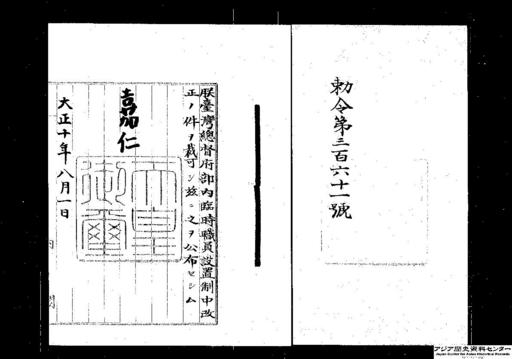 勅令第三百六十一號
朕臺灣總督府部内臨時職員設置制中改
正ノ件ヲ裁可シ玆ニ之ヲ公布セシム
嘉仁
天皇御璽
大正十年八月一日
アジア歴史資料センター
Japan Center for Asian Historical Records